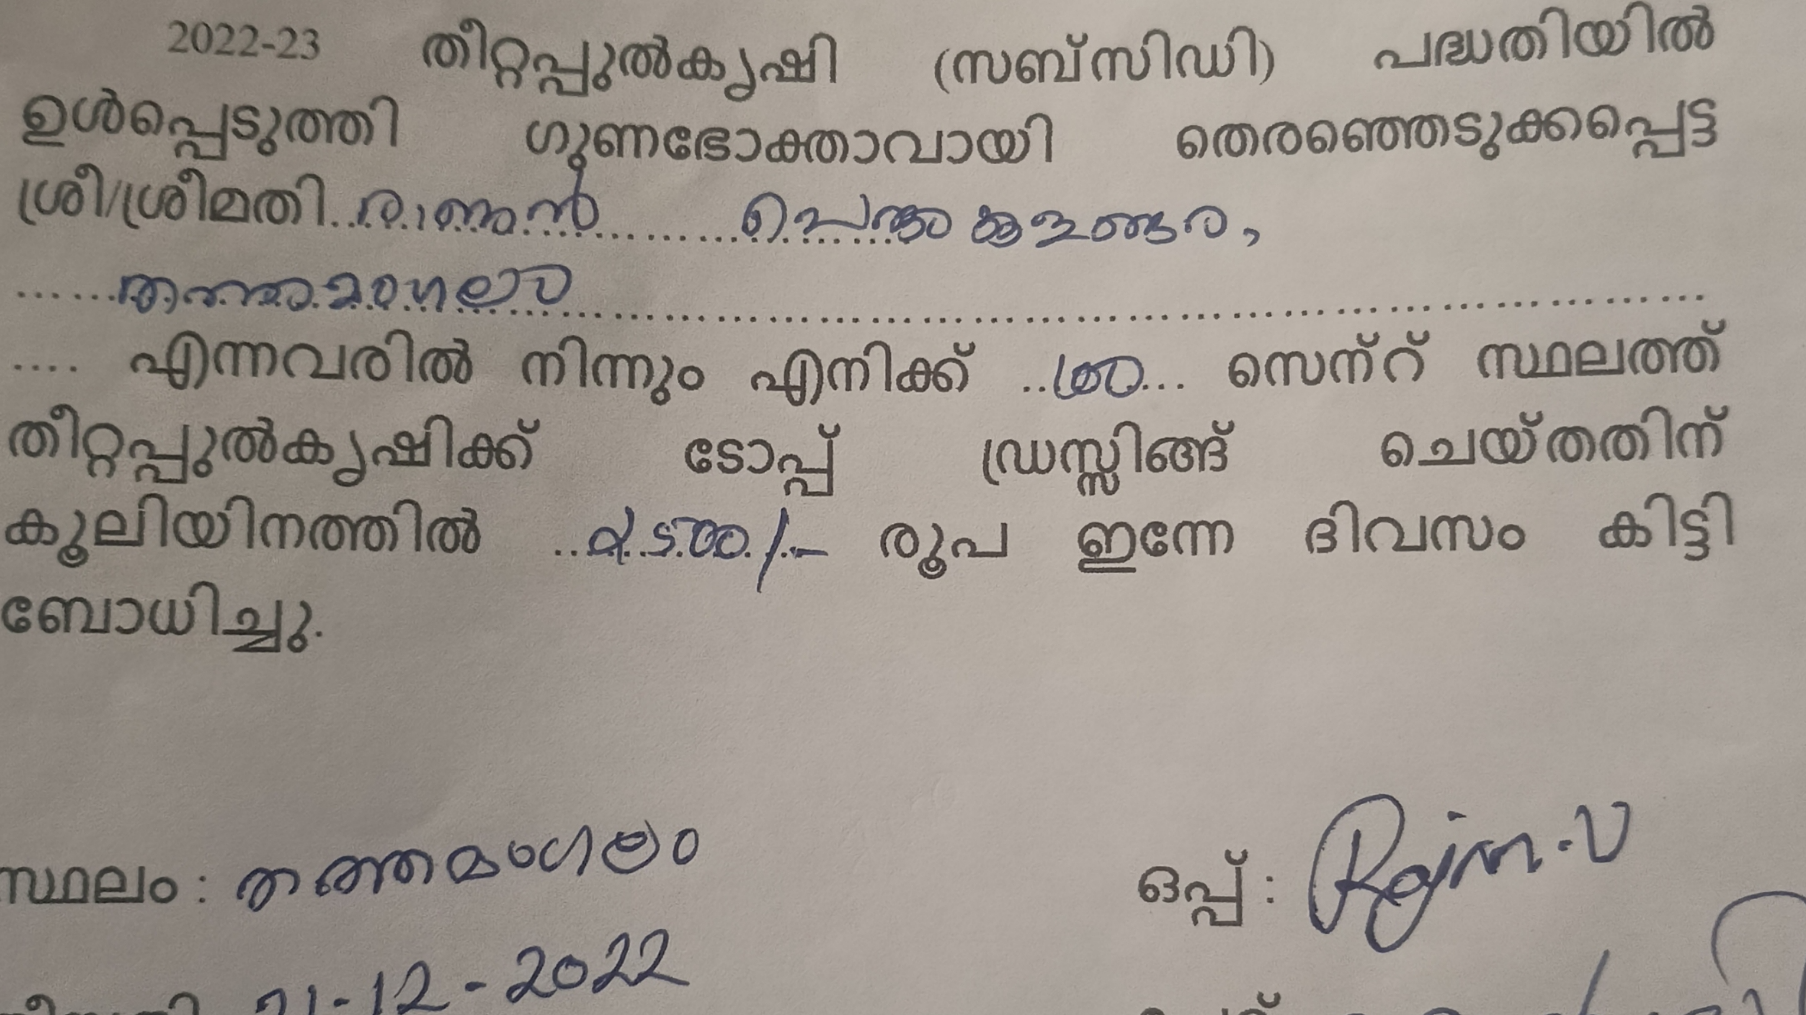 2022-23 തീറ്റപ്പുൽകൃഷി (സബ്സിഡി) പദ്ധതിയിൽ
ഉൾപ്പെടുത്തി ഗുണഭോക്താവായി തെരഞ്ഞെടുക്കപ്പെട്ട
ശ്രീ/ശ്രീമതി..
......തത്തമംഗലം......
.... എന്നവരിൽ നിന്നും എനിക്ക് ... സെന്റ് സ്ഥലത്ത്
തീറ്റപ്പുൽകൃഷിക്ക് ടോപ്പ് ഡ്രസ്സിങ്ങ് ചെയ്തതിന്
കൂലിയിനത്തിൽ രൂപ ഇന്നേ ദിവസം കിട്ടി
ബോധിച്ചു.
സ്ഥലം : തത്തമംഗലം
ഒപ്പ് :
21-12-2022